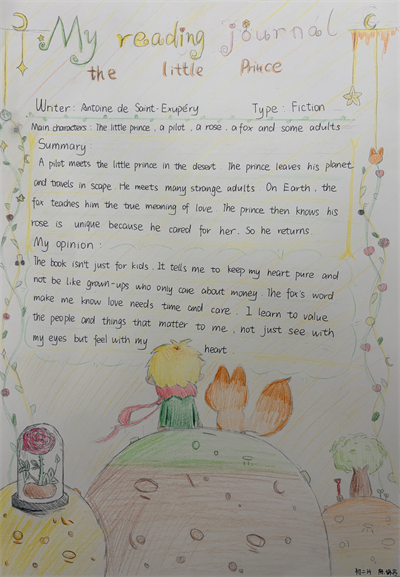 My reading journal
the little Prince
Writer: Antoine de Saint-Exupéry Type: Fiction
Main characters: The little prince, a pilot, a rose, a fox and some adults
Summary
A pilot meets the little prince in the desert. The prince leaves his planet
and travels in scape. He meets many strange adults. On Earth, the
fox teaches him the true meaning of love. The prince then knows his
rose is unique because he cared for her. So he returns
My opinion:
The book isn't just for kids. It tells me to keep my heart pure and
not be like grown-ups who only care about money. The fox's word
make me know love needs time and care. I learn to value
the people and things that matter to me, not just see with
my eyes but feel with my heart